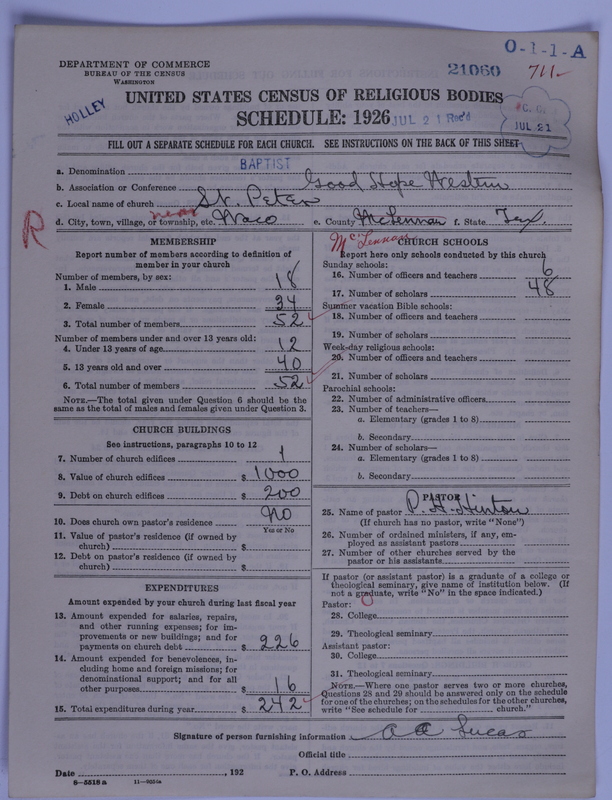 O-1-1-A
DEPARTMENT OF COMMERCE
BUREAU OF THE CENSUS
WASHINGTON
21060 711-
HOLLEY
UNITED STATES CENSUS OF RELIGIOUS BODIES
SCHEDULE: 1926
JUL 21 Rec'd
JUL 21
FILL OUT A SEPARATE SCHEDULE FOR EACH CHURCH. SEE INSTRUCTIONS ON THE BACK OF THIS SHEET
BAPTIST
a. Denomination
b. Association or Conference Good Hope Western
c. Local name of church St. Peter
near
d. City, town, village, or township, etc. Waco e. County McLennan f. State Tex.
R
McLennan
MEMBERSHIP
Report number of members according to definition of
member in your church
Number of members, by sex:
1. Male 18
2. Female 34
3. Total number of members 52
Number of members under and over 13 years old:
4. Under 13 years of age 12
5. 13 years old and over 40
6. Total number of members 52
NOTE.—The total given under Question 6 should be the
same as the total of males and females given under Question 3.
CHURCH BUILDINGS
See instructions, paragraphs 10 to 12
7. Number of church edifices 1
8. Value of church edifices $ 1000
9. Debt on church edifices $ 200
10. Does church own pastor's residence No
Yes or No
11. Value of pastor's residence (if owned by
church) $
12. Debt on pastor's residence (if owned by
church) $
EXPENDITURES
Amount expended by your church during last fiscal year
13. Amount expended for salaries, repairs,
and other running expenses; for im-
provements or new buildings; and for
payments on church debt $ 226
14. Amount expended for benevolences, in-
cluding home and foreign missions; for
denominational support; and for all
other purposes $ 16
15. Total expenditures during year $ 242
CHURCH SCHOOLS
Report here only schools conducted by this church
Sunday schools:
16. Number of officers and teachers 6
17. Number of scholars 48
Summer vacation Bible schools:
18. Number of officers and teachers
19. Number of scholars
Week-day religious schools:
20. Number of officers and teachers
21. Number of scholars
Parochial schools:
22. Number of administrative officers
23. Number of teachers—
a. Elementary (grades 1 to 8)
b. Secondary
24. Number of scholars—
a. Elementary (grades 1 to 8)
b. Secondary
PASTOR
25. Name of pastor P. H. Hinton
(If church has no pastor, write "None")
26. Number of ordained ministers, if any, em-
ployed as assistant pastors
27. Number of other churches served by the
pastor or his assistants
If pastor (or assistant pastor) is a graduate of a college or
theological seminary, give name of institution below. (If
not a graduate, write "No" in the space indicated.)
Pastor:
28. College
29. Theological seminary
Assistant pastor:
30. College
31. Theological seminary
NOTE.—Where one pastor serves two or more churches,
Questions 28 and 29 should be answered only on the schedule
for one of the churches; on the schedules for the other churches,
write "See schedule for church."
Signature of person furnishing information A A Lucas
Official title
Date , 192 P. O. Address
8-5518a 11-9654a